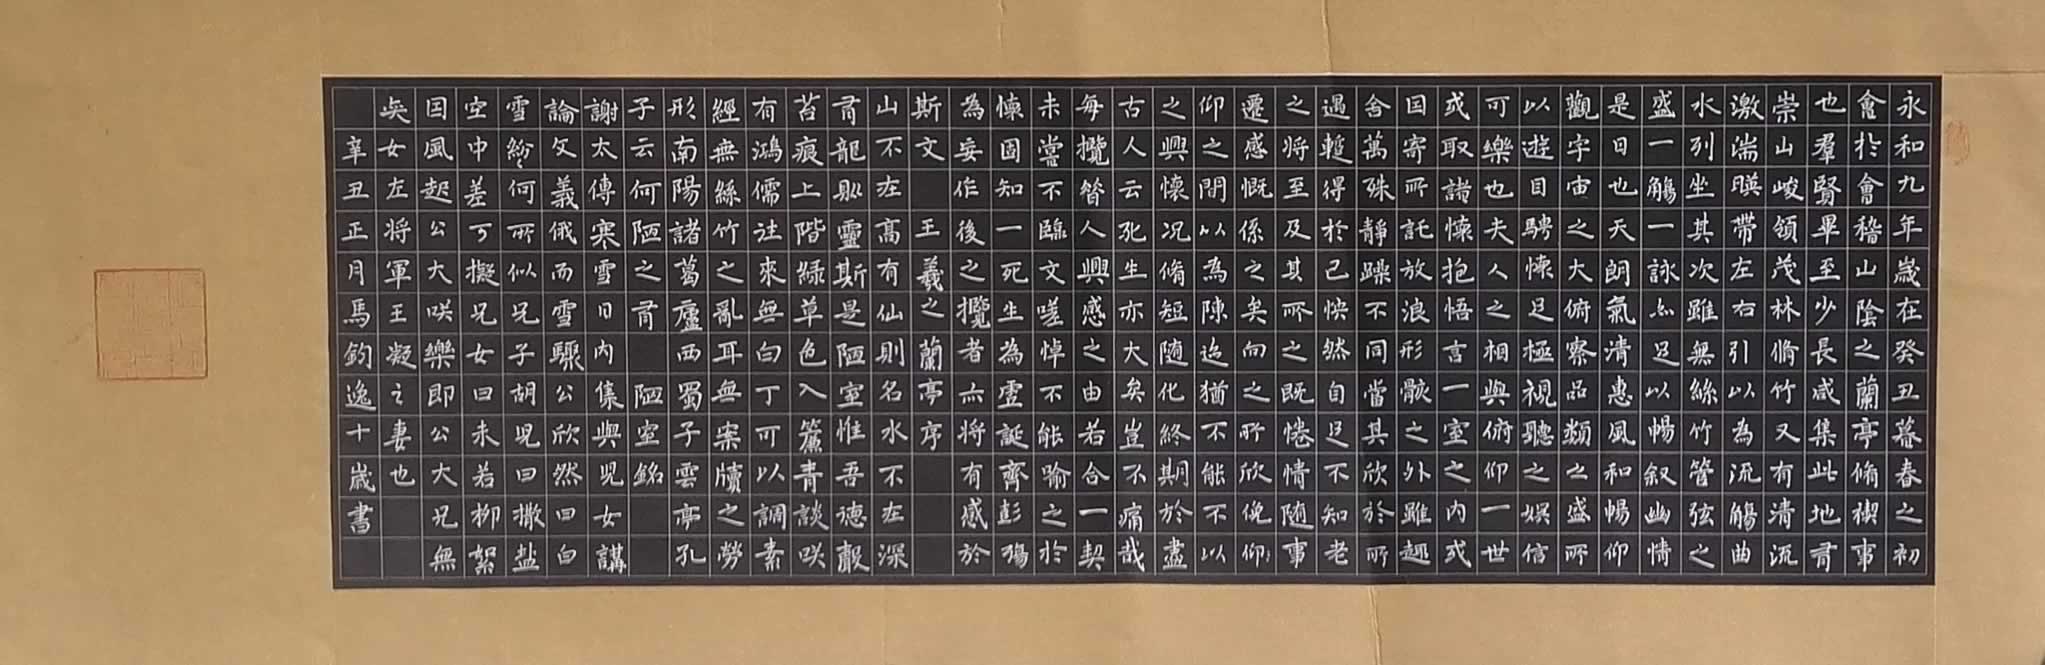 永和九年歲在癸丑暮春之初
會於會稽山陰之蘭亭脩禊事
也羣賢畢至少長咸集此地有
崇山峻領茂林脩竹又有清流
激湍暎帶左右引以為流觴曲
水列坐其次雖無絲竹管弦之
盛一觴一詠亦足以暢叙幽情
是日也天朗氣清惠風和暢仰
觀宇宙之大俯察品類之盛所
以遊目騁懷足極視聽之娛信
可樂也夫人之相與俯仰一世
或取諸懷抱悟言一室之內或
因寄所託放浪形骸之外雖趣
舍萬殊靜躁不同當其欣於所
遇蹔得於己怏然自足不知老
之將至及其所之既惓情隨事
遷感慨係之矣向之所欣俛仰
仰之間以為陳迹猶不能不以
之興懷況脩短隨化終期於盡
古人云死生亦大矣豈不痛哉
每攬昝人興感之由若合一契
未嘗不臨文嗟悼不能喻之於
懷固知一死生為虛誕齊彭殤
為妄作後之攬者亦將有感於
斯文 王羲之 蘭亭序
山不在高有仙則名水不在深
有龍則靈斯是陋室惟吾德馨
苔痕上階綠草色入簾青談咲
有鴻儒往來無白丁可以調素
經無絲竹之亂耳無案牘之勞
形南陽諸葛廬西蜀子雲亭孔
子云何陋之有 陋室銘
謝太傅寒雪日內集與兒女講
論文義俄而雪驟公欣然曰白
雪紛々何所似兄子胡兒曰撒盐
空中差可擬兄女曰未若柳絮
因風起公大咲樂即公大兄無
奕女左將軍王凝之妻也
辛丑正月馬鈞逸十歲書